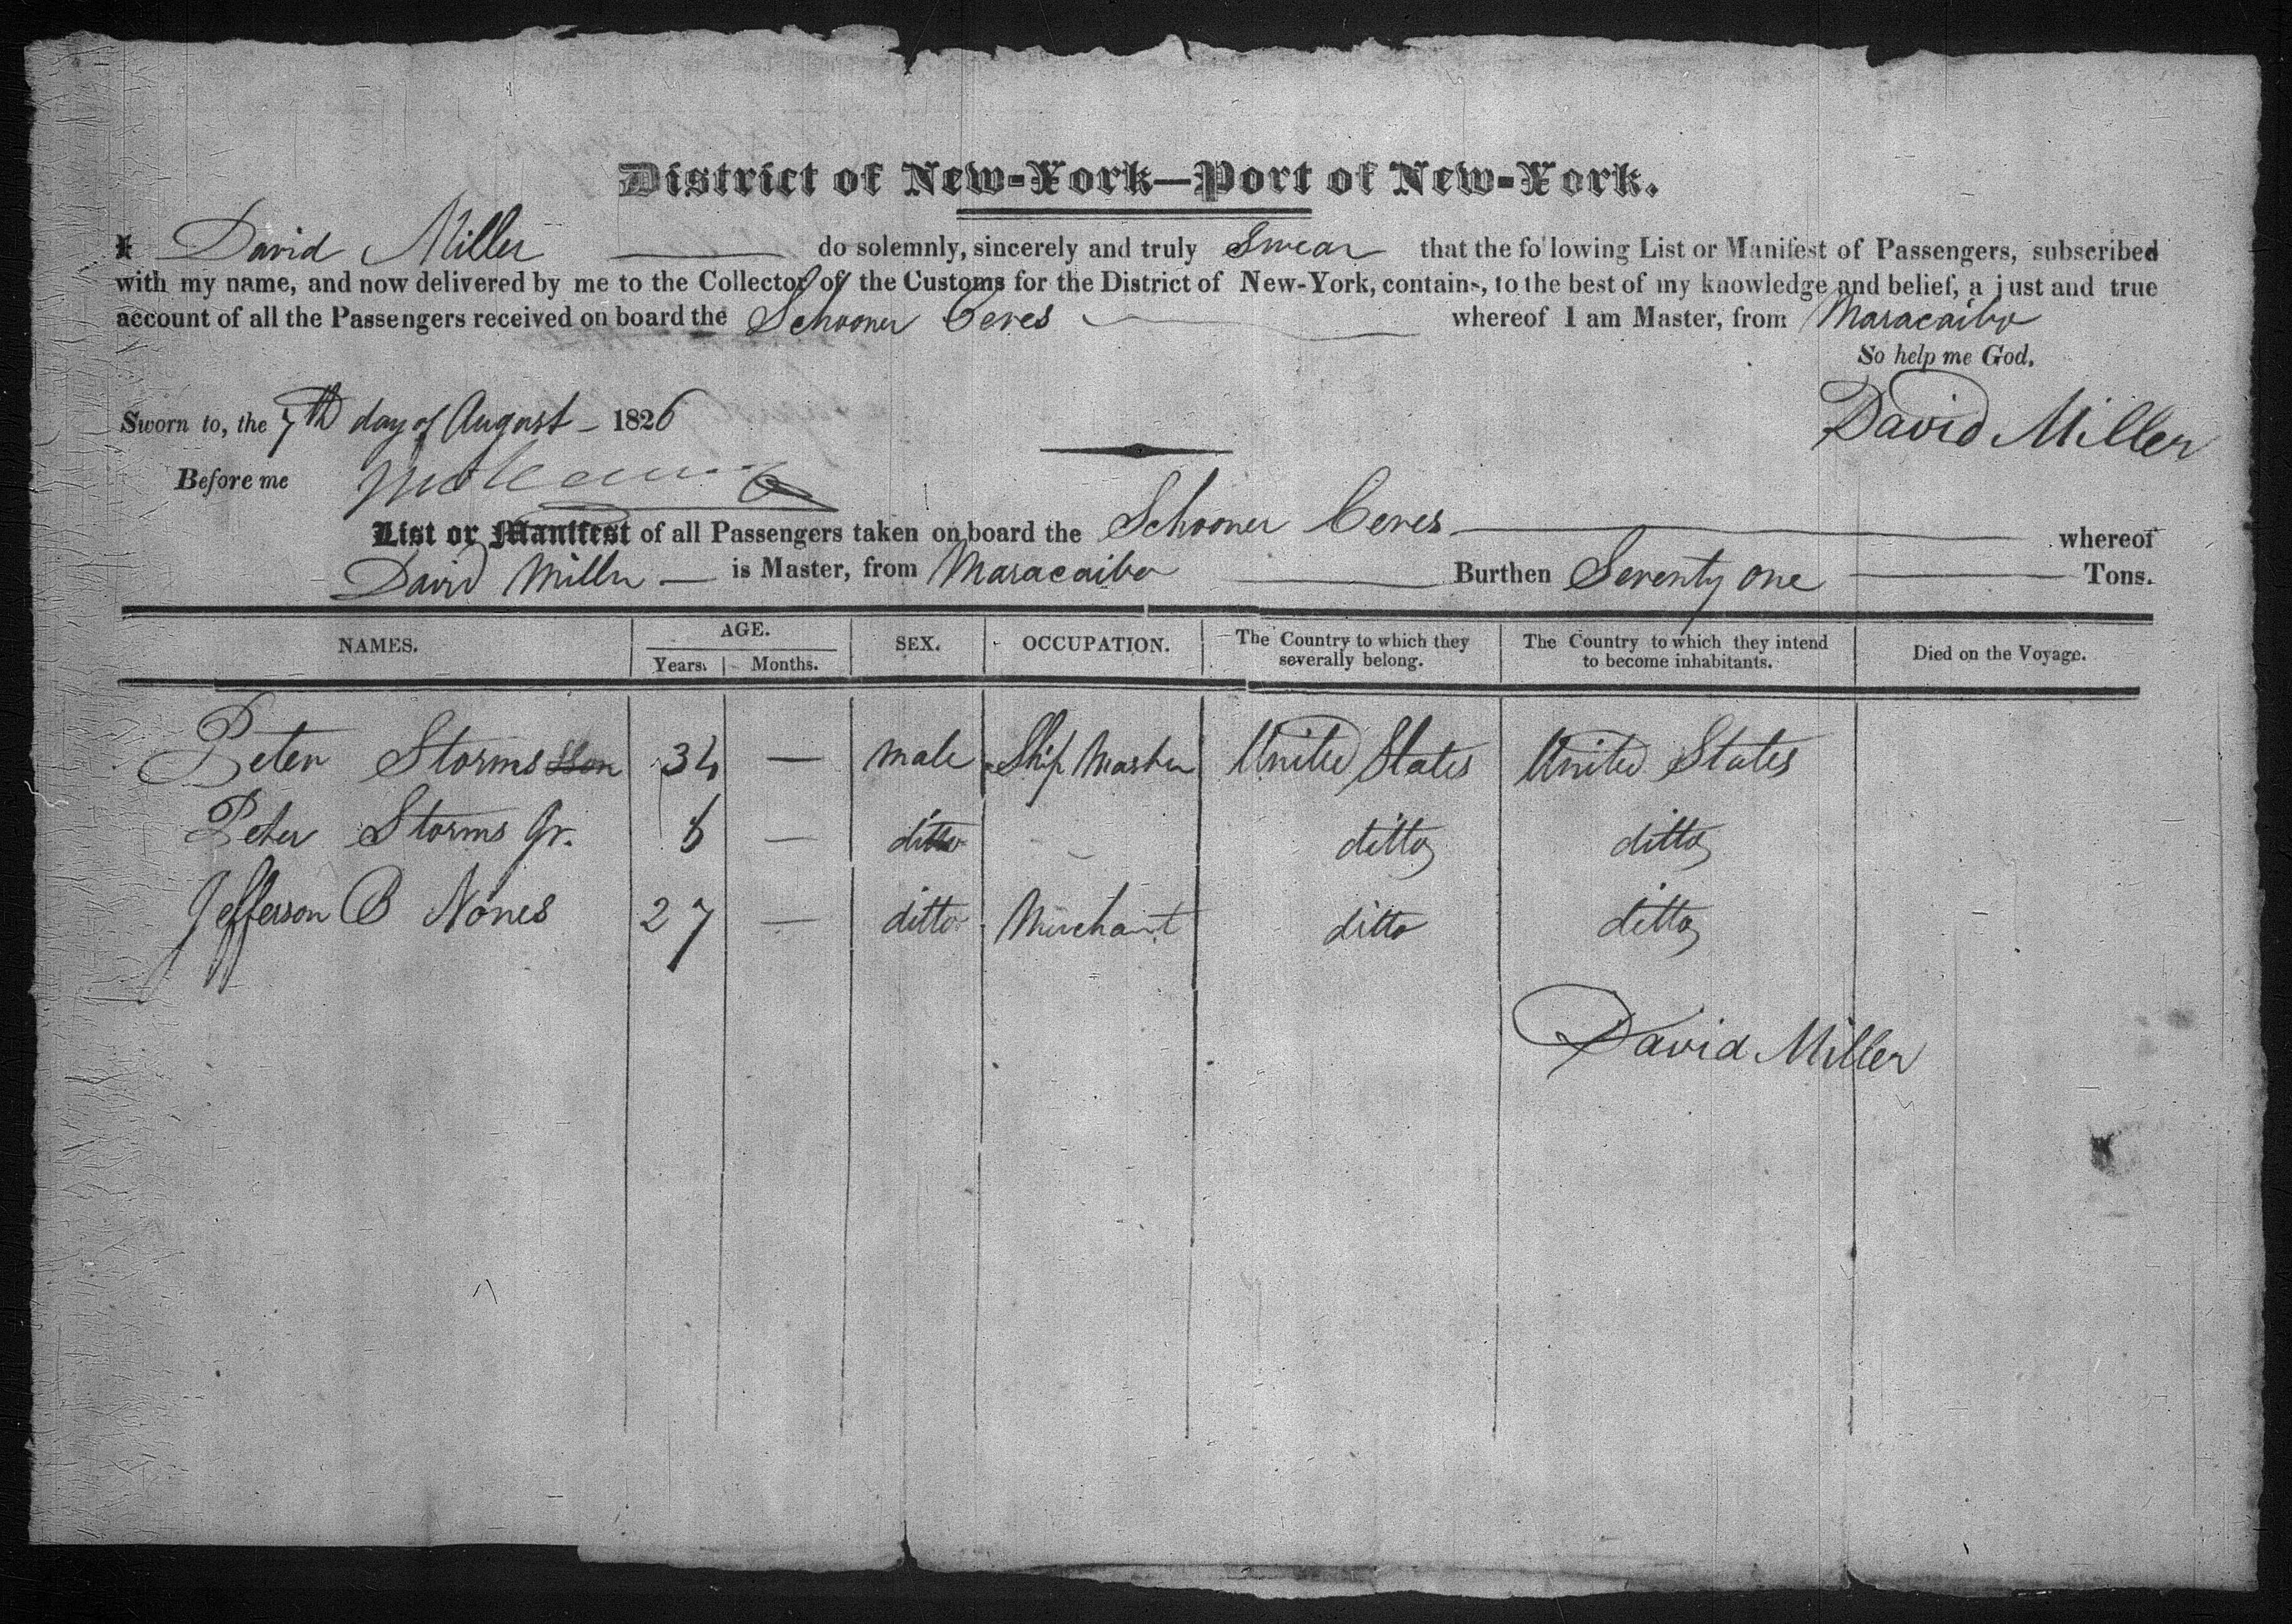 District of New-York—Port of New-York.
I David Miller do solemnly, sincerely and truly Swear that the following List or Manifest of Passengers, subscribed
with my name, and now delivered by me to the Collector of the Customs for the District of New-York, contains, to the best of my knowledge and belief, a just and true
account of all the Passengers received on board the Schooner Ceres whereof I am Master, from Maracaibo
So help me God.
Sworn to, the 7th day of August - 1826
David Miller
Before me
List or Manifest of all Passengers taken on board the Schooner Ceres whereof
David Miller — is Master, from Maracaibo Burthen Seventy one Tons.
NAMES. AGE. SEX. OCCUPATION. The Country to which they severally belong. The Country to which they intend to become inhabitants. Died on the Voyage.
Years. Months.
Peter Storms 34 — male Ship Master United States United States
Peter Storms Jr. — ditto ditto ditto
Jefferson B Nones 27 — ditto Merchant ditto ditto
David Miller